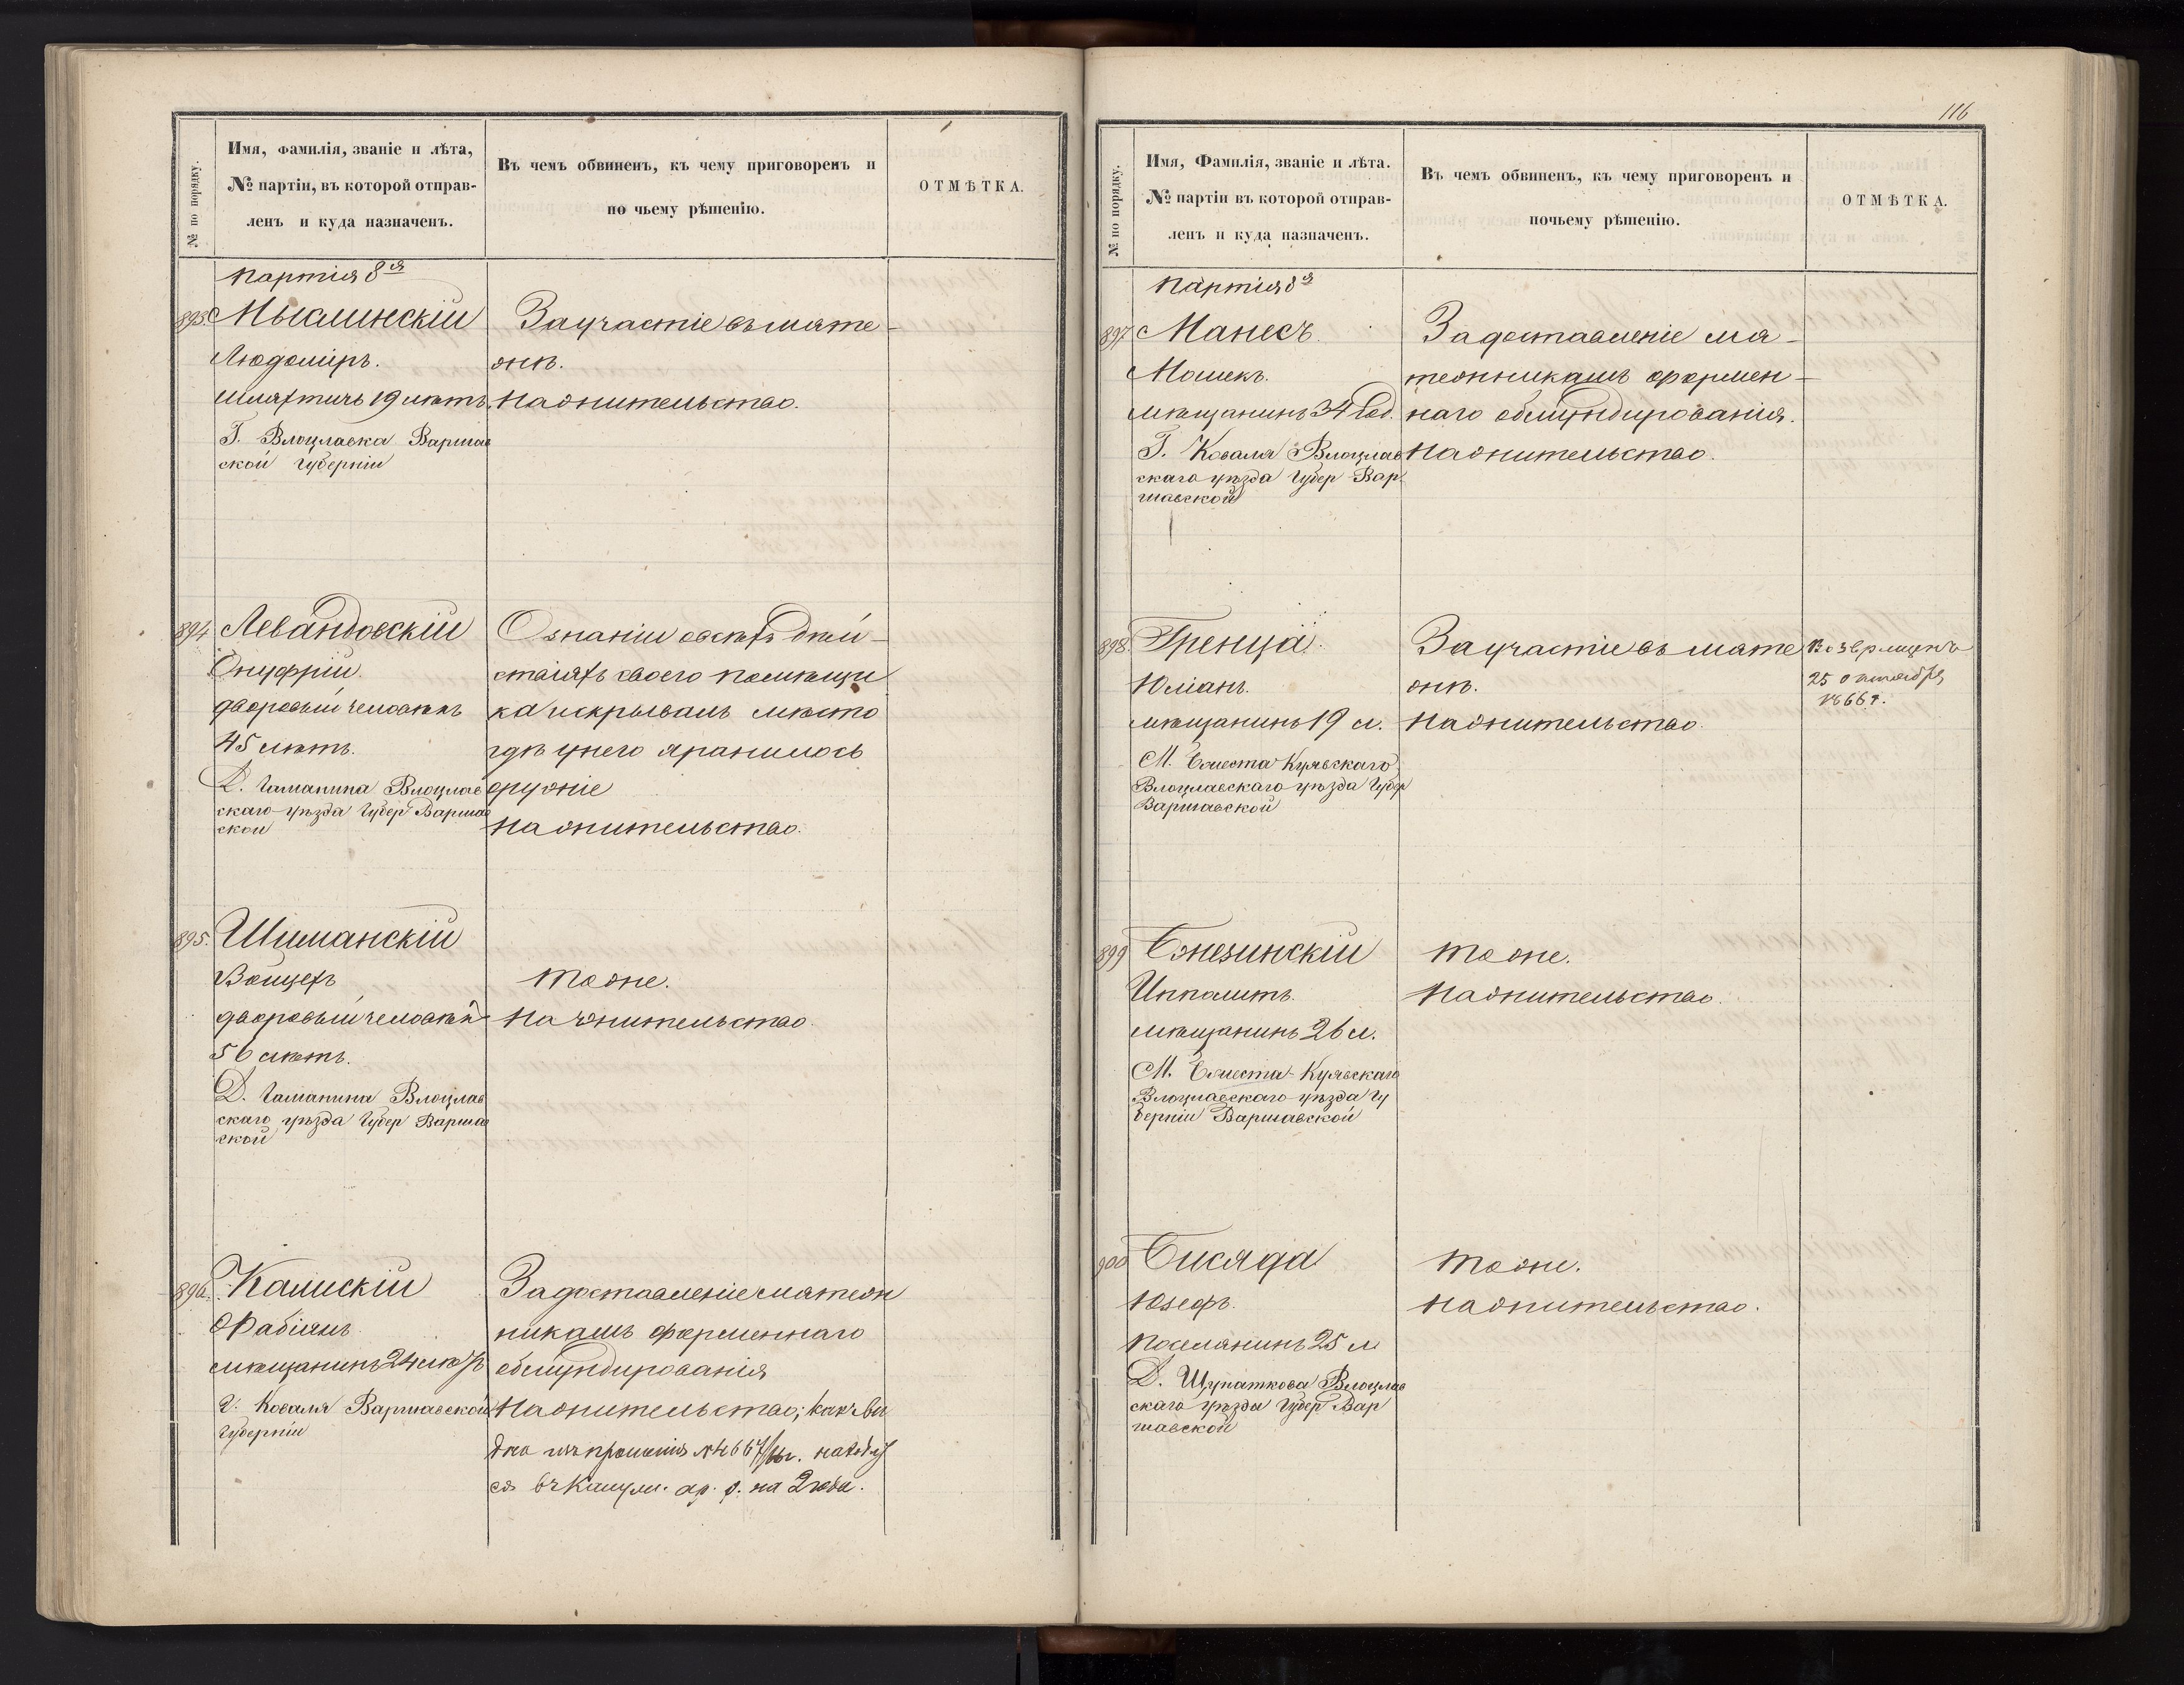 № по порядку.
Имя, фамилія, званіе и лѣта,
№ партіи, въ которой отправ-
ленъ и куда назначенъ.
Въ чемъ обвиненъ, къ чему приговоренъ и
по чьему рѣшенію.
ОТМѢТКА.
Партія 8ая
893.
Мыслинскій
Людоміръ.
шляхтичъ 19 лѣтъ.
Г. Влоцлавка Варшав
ской губерніи
За участіе въ мяте-
жѣ.
На жительство.
894
Левандовскій
Онуфрій.
дворовый человѣкъ
45 лѣтъ.
Д. Влоцлав
скаго уѣзда Губер Варшав
ской
О знаніи о всѣхъ дѣй-
ствіяхъ своего помѣщи
ка и скрывалъ мѣсто
гдѣ у него хранилось
оружіе
На жительство.
895.
Шиманскій
Войцехъ
дворовый человѣкъ
56 лѣтъ.
Д. Влоцлав
скаго уѣзда Губер Варшав
ской
Тоже.
На жительство.
896.
Калискій
Фабіянъ
мѣщанинъ 24 лѣтъ
г. Коваля Варшавской
Губерніи
За доставленіе мятеж
никамъ форменнаго
обмундированія
На жительство; какъ ви
дно изъ прошенія № 4667/ находит
ся въ ар. р. на 2 года.
116
№ по порядку.
Имя, Фамилія, званіе и лѣта.
№ партіи въ которой отправ-
ленъ и куда назначенъ.
Въ чемъ обвиненъ, къ чему приговоренъ и
почьему рѣшенію.
ОТМѢТКА.
Партія 8я
897
Манесъ.
Мошекъ.
мѣщанинъ 34 год.
Г. Коваля Влоцлав
скаго уѣзда Губер Вар
шавской
За доставленіе мя-
тежникамъ формен-
наго обмундированія.
На жительство.
898.
Гренца.
Юліанъ.
мѣщанинъ 19 л.
М. Бжеста Куявскаго
Влоцлавскаго уѣзда Губер
Варшавской
За участіе въ мяте
жѣ.
На жительство.
Возвращенъ
25 октября
1866 г.
899
Бжезинскій
Ипполитъ.
мѣщанинъ 26 л.
М. Бжеста-Куявскаго
Влоцлавскаго уѣзда Гу
берніи Варшавской
Тоже.
На жительство.
900
Бисяда
Юзефъ.
Поселянинъ 25 л
Д. Щупаткова Влоцлав
скаго уѣзда Губер Вар
шавской
Тоже.
На жительство.